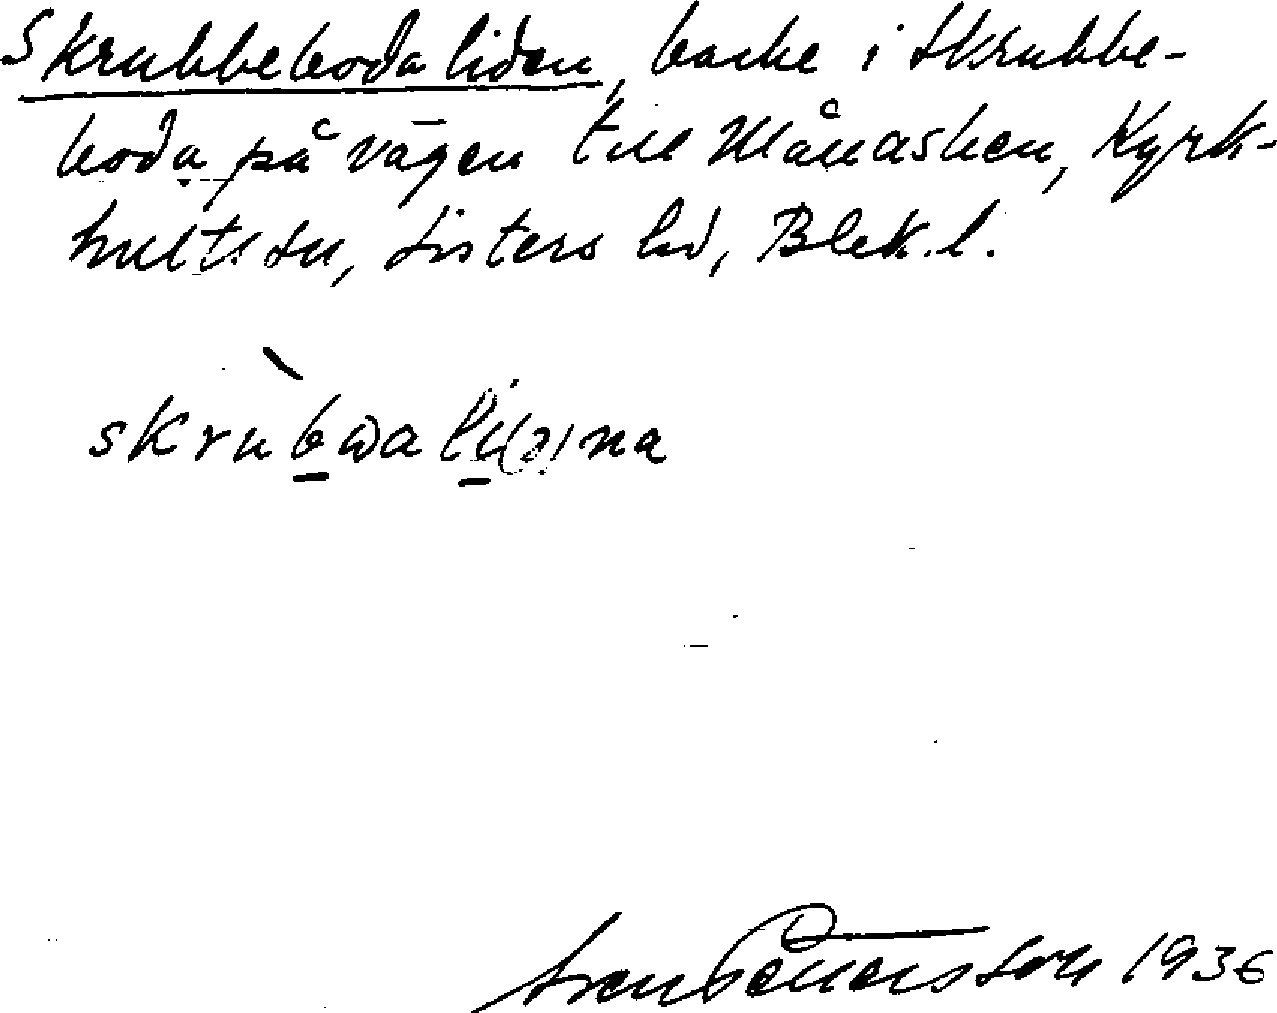 Skrubbeboda liden, backe i Skrubbe-
boda på vägen till Månasken, Kyrk-
hults sn, Listers hd, Blek. l.
Sven Pettersson 1936